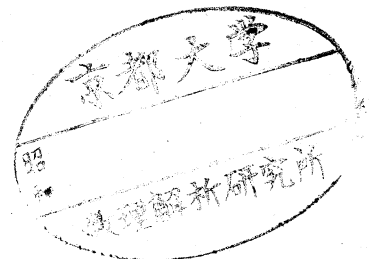 京都大学
昭
和
数理解析研究所